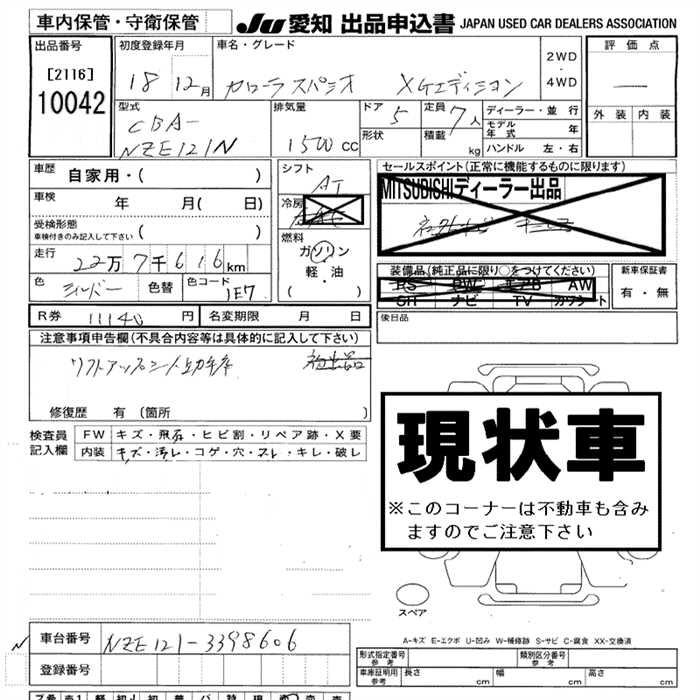 車内保管・守衛保管 JU 愛知 出品申込書 JAPAN USED CAR DEALERS ASSOCIATION
出品番号 初度登録年月 車名・グレード 評価点
[2116] 18 12月 カローラスパシオ XGエディション 2WD・4WD
10042 型式 排気量 ドア 定員 ディーラー・並行 外装 内装
CBA- 1500cc 5 7人 モデル年式 年
NZE121N 形状 積載 kg ハンドル 左・右
車歴 自家用・( ) シフト セールスポイント(正常に機能するものに限ります)
車検 年 月( 日) AT MITSUBISHIディーラー出品
受検形態 冷房
車検付きのみ記入して下さい ( ) 燃料
走行 22万7千616km ガソリン 装備品(純正品に限り○をつけてください) 新車保証書
色 シルバー 色替 色コード 1E7 軽・油 SR PW エアB AW 有・無
( ) SH ナビ TV カワシート
R券 11140円 名変期限 月 日 後日品
注意事項申告欄(不具合内容等は具体的に記入して下さい)
リフトアップシート助手席
修復歴 有 (箇所 )
現状車
※このコーナーは不動車も含みますのでご注意下さい
検査員 FW キズ・飛石・ヒビ割・リペア跡・X要
記入欄 内装 キズ・汚レ・コゲ・穴・スレ・キレ・破レ
スペア
A-キズ E-エクボ U-凹み W-補修跡 S-サビ C-腐食 XX-交換済
車台番号 NZE121-3398606
登録番号
形式指定番号 参考 類別区分番号 参考
車庫証明用 参考 長さ cm 幅 cm 高さ cm